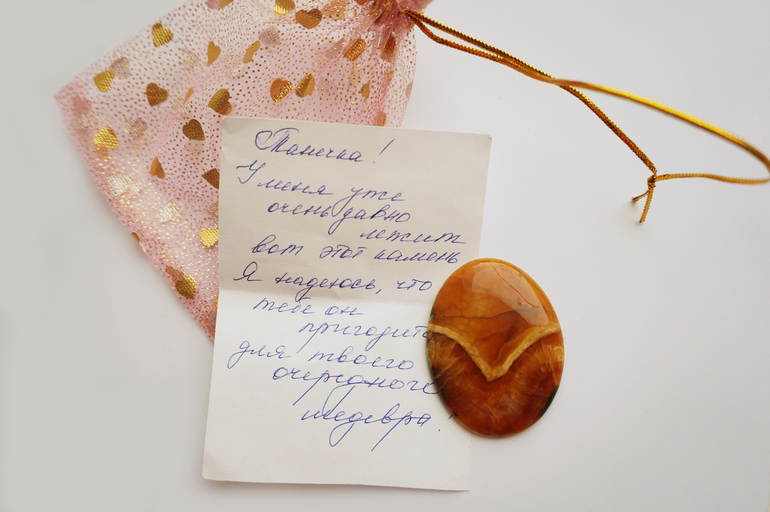 Танечка!
У меня уже
очень давно
лежит
вот этот камень
Я надеюсь, что
тебе он
пригодитс
для твоего
очередного
шедевра!